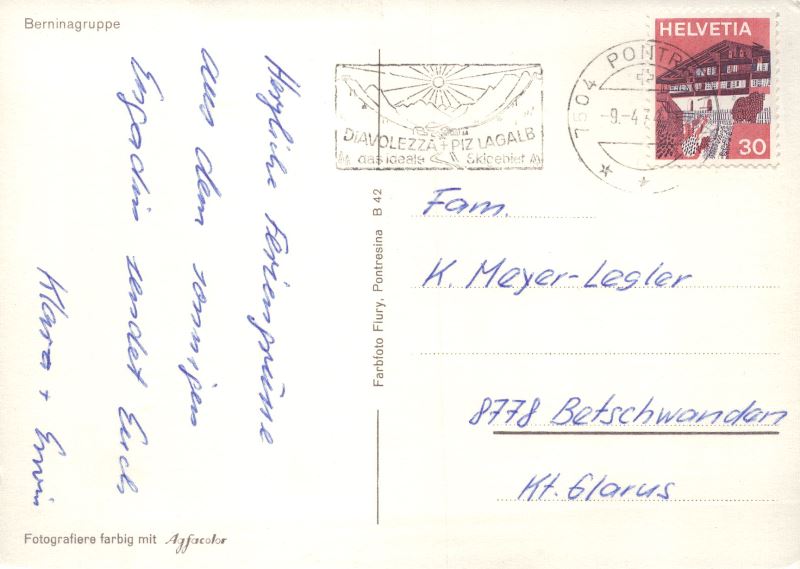 Berninagruppe
Herzliche Feriengrüsse
aus dem sonnigen
Engadin sendet Euch
Klara + Erwin
Fotografiere farbig mit Agfacolor
Farbfoto Flury, Pontresina B 42
DIAVOLEZZA + PIZ LAGALB
das ideale Skigebiet
7504 PONTR
-9.-4.7
HELVETIA
30
Fam.
K. Meyer-Legler
8778 Betschwanden
Kt. Glarus